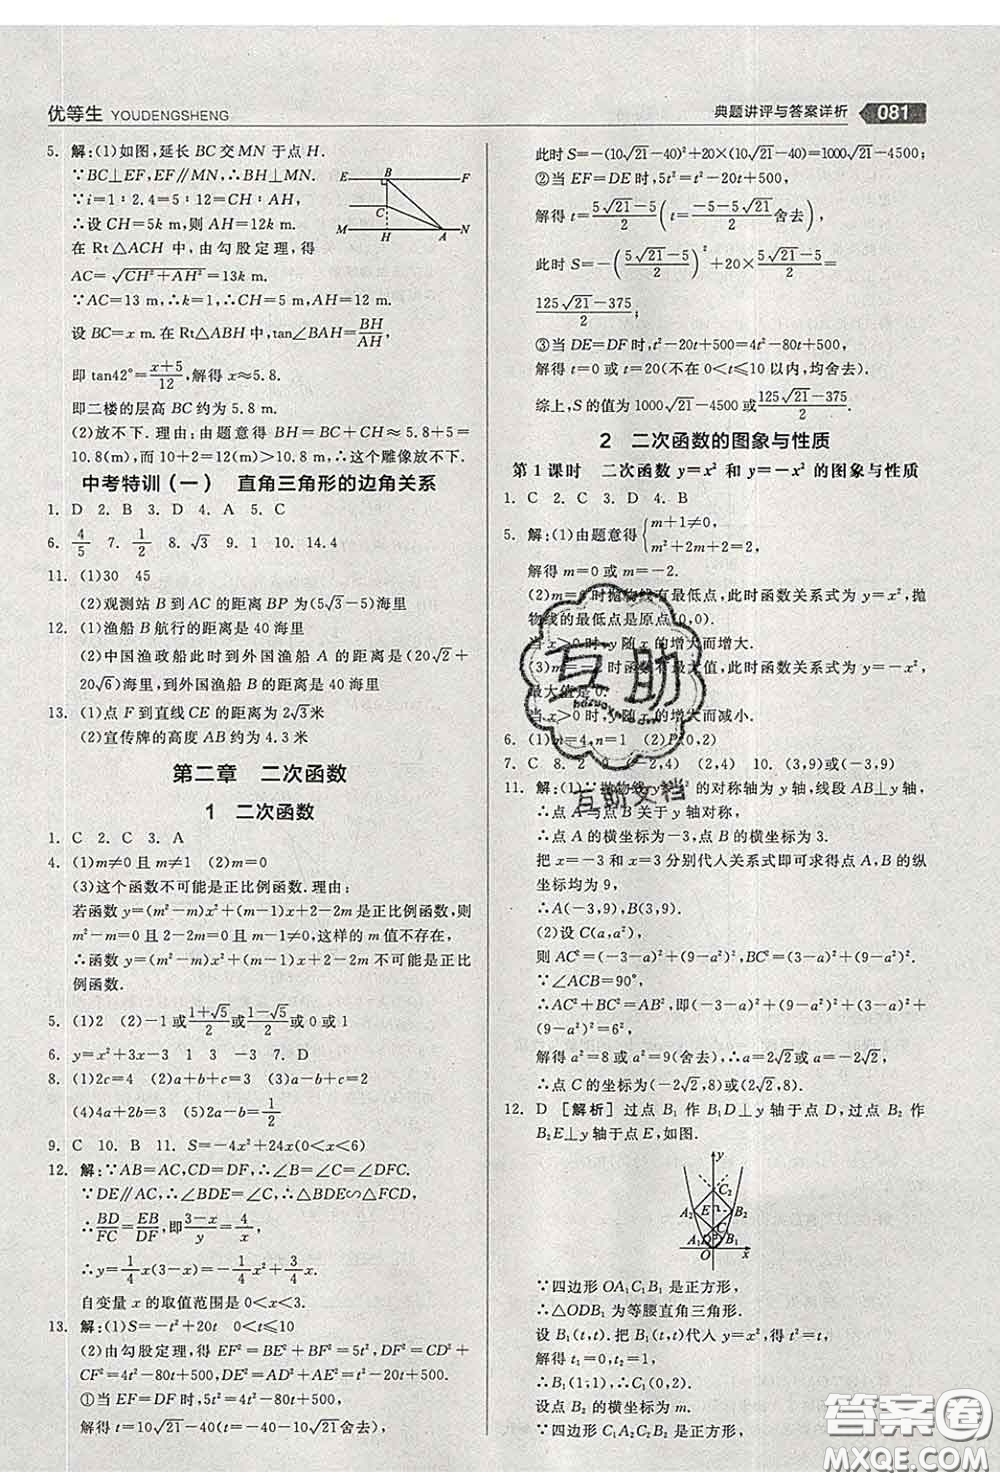 优等生 YOUDENGSHENG
典题讲评与答案详析 081
5. 解:(1)如图,延长 BC 交 MN 于点 H.
∵BC⊥EF,EF∥MN,∴BH⊥MN.
∵i=1∶2.4=5∶12=CH∶AH,
∴设 CH=5k m,则 AH=12k m.
在 Rt△ACH 中,由勾股定理,得
AC=√(CH²+AH²)=13k m.
∵AC=13 m,∴k=1,∴CH=5 m,AH=12 m.
设 BC=x m.在 Rt△ABH 中,tan∠BAH=BH/AH,
即 tan42°=(x+5)/12,解得 x≈5.8.
即二楼的层高 BC 约为 5.8 m.
(2)放不下.理由:由题意得 BH=BC+CH≈5.8+5=
10.8(m).而 10+2=12>10.8,∴这个雕像放不下.
E B F
C
M H A N
中考特训(一) 直角三角形的边角关系
1. D 2. B 3. D 4. A 5. C
6. 4/5 7. 1/2 8. √3 9. 1 10. 14.4
11. (1)30 45
(2)观测站 B 到 AC 的距离 BP 为(5√3-5)海里
12. (1)渔船 B 航行的距离是 40 海里
(2)中国渔政船此时到外国渔船 A 的距离是(20√2+
20√6)海里,到外国渔船 B 的距离是 40 海里
13. (1)点 F 到直线 CE 的距离为 2√3米
(2)宣传牌的高度 AB 约为 4.3 米
第二章 二次函数
1 二次函数
1. C 2. C 3. A
4. (1)m≠0 且 m≠1 (2)m=0
(3)这个函数不可能是正比例函数.理由:
若函数 y=(m²-m)x²+(m-1)x+2-2m是正比例函数,则
m²-m=0 且 m-1≠0,这样的 m 值不存在,
∴函数 y=(m²-m)x²+(m-1)x+2-2m 不可能是正比
例函数.
5. (1)2 (2)-1 或(1+√5)/2或(1-√5)/2或 0 或 1
6. y=x²+3x-3 1 3 -3 7. D
8. (1)2c=4 (2)a+b=5 (3)a-b=3
(4)4a+2b=3 (5)a-b+c=1/2
9. C 10. B 11. S=-4x²+24x(0<x<6)
12. 解:∵AB=AC,CD=DF,∴∠B=∠C=∠DFC.
∵DE∥AC,∴∠BDE=∠C,∴△BDE∽△FCD,
∴BD/FC=EB/DF,即(3-x)/y=4/x,
∴y=1/4x(3-x)=-1/4x²+3/4x.
自变量 x 的取值范围是 0<x<3.
13. 解:(1)S=-t²+20t 0<t≤10
(2)由勾股定理,得 EF²=BE²+BF²=5t²,DF²=DC²+
CF²=4t²-80t+500,DE²=AD²+AE²=t²-20t+500.
①当 EF=DF时,5t²=4t²-80t+500,
解得 t=10√21-40(t=-40-10√21舍去),
此时 S=-(10√21-40)²+20×(10√21-40)=1000√21-4500;
②当 EF=DE 时,5t²=t²-20t+500,
解得 t=(5√21-5)/2(t=(-5-5√21)/2舍去),
此时 S=-((5√21-5)/2)²+20×(5√21-5)/2=
(125√21-375)/2;
③当 DE=DF时,t²-20t+500=4t²-80t+500,
解得 t=0或 t=20(不在 0<t≤10 以内,均舍去).
综上,S 的值为 1000√21-4500 或(125√21-375)/2.
2 二次函数的图象与性质
第 1 课时 二次函数 y=x² 和 y=-x² 的图象与性质
1. C 2. C 3. D 4. B
5. 解:(1)由题意得{m+1≠0, m²+2m+2=2,
解得 m=0 或 m=-2.
(2)m=0 时抛物线有最低点,此时函数关系式为 y=x²,抛
物线的最低点是原点(0,0).
当 x>0 时,y 随 x 的增大而增大.
(3)m=-2 时函数有最大值,此时函数关系式为 y=-x²,
最大值是 0.
当 x>0 时,y 随 x 的增大而减小.
6. (1)m=4,n=1 (2)P(0,2)
7. C 8. 2 9. (2,4) 10. (3,9)或(-3,9)
11. 解:(1)∵抛物线 y=x² 的对称轴为 y 轴,线段 AB⊥y 轴,
∴点 A 与点 B 关于 y 轴对称.
∴点 A 的横坐标为-3,点 B 的横坐标为 3.
把 x=-3 和 x=3 分别代入关系式即可求得点 A,B 的纵
坐标均为 9,
∴A(-3,9),B(3,9).
(2)设 C(a,a²),
则 AC²=(-3-a)²+(9-a²)²,BC²=(3-a)²+(9-a²)².
∵∠ACB=90°,
∴AC²+BC²=AB²,即(-3-a)²+(9-a²)²+(3-a)²+
(9-a²)²=6²,
解得 a²=8 或 a²=9(舍去),∴a=2√2或 a=-2√2,
∴点 C 的坐标为(-2√2,8)或(2√2,8).
12. D [解析] 过点 B₁ 作 B₁D⊥y 轴于点 D,过点 B₂ 作
B₂E⊥y 轴于点 E,如图.
y
C₂
A₂ E B₂
C₁
A₁ D B₁
O x
∵四边形 OA₁C₁B₁ 是正方形,
∴△ODB₁ 为等腰直角三角形.
设 B₁(t,t).把 B₁(t,t)代入 y=x² 得 t²=t,
解得 t=1 或 t=0(舍去),
∴B₁(1,1),∴C₁(0,2).
设点 B₂ 的横坐标为 m.
∵四边形 C₁A₂C₂B₂ 是正方形,
互助
互助文档
答案圈
MXQE.COM